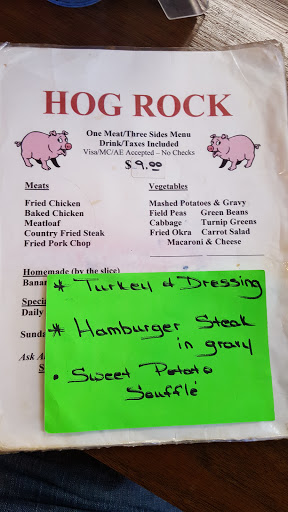 HOG ROCK
One Meat/Three Sides Menu
Drink/Taxes Included
Visa/MC/AE Accepted – No Checks
$ 9.00
Meats
Fried Chicken
Baked Chicken
Meatloaf
Country Fried Steak
Fried Pork Chop
Vegetables
Mashed Potatoes & Gravy
Field Peas Green Beans
Cabbage Turnip Greens
Fried Okra Carrot Salad
Macaroni & Cheese
Homemade (by the slice)
Daily
* Turkey & Dressing
* Hamburger Steak
in gravy
• Sweet Potato
Soufflé